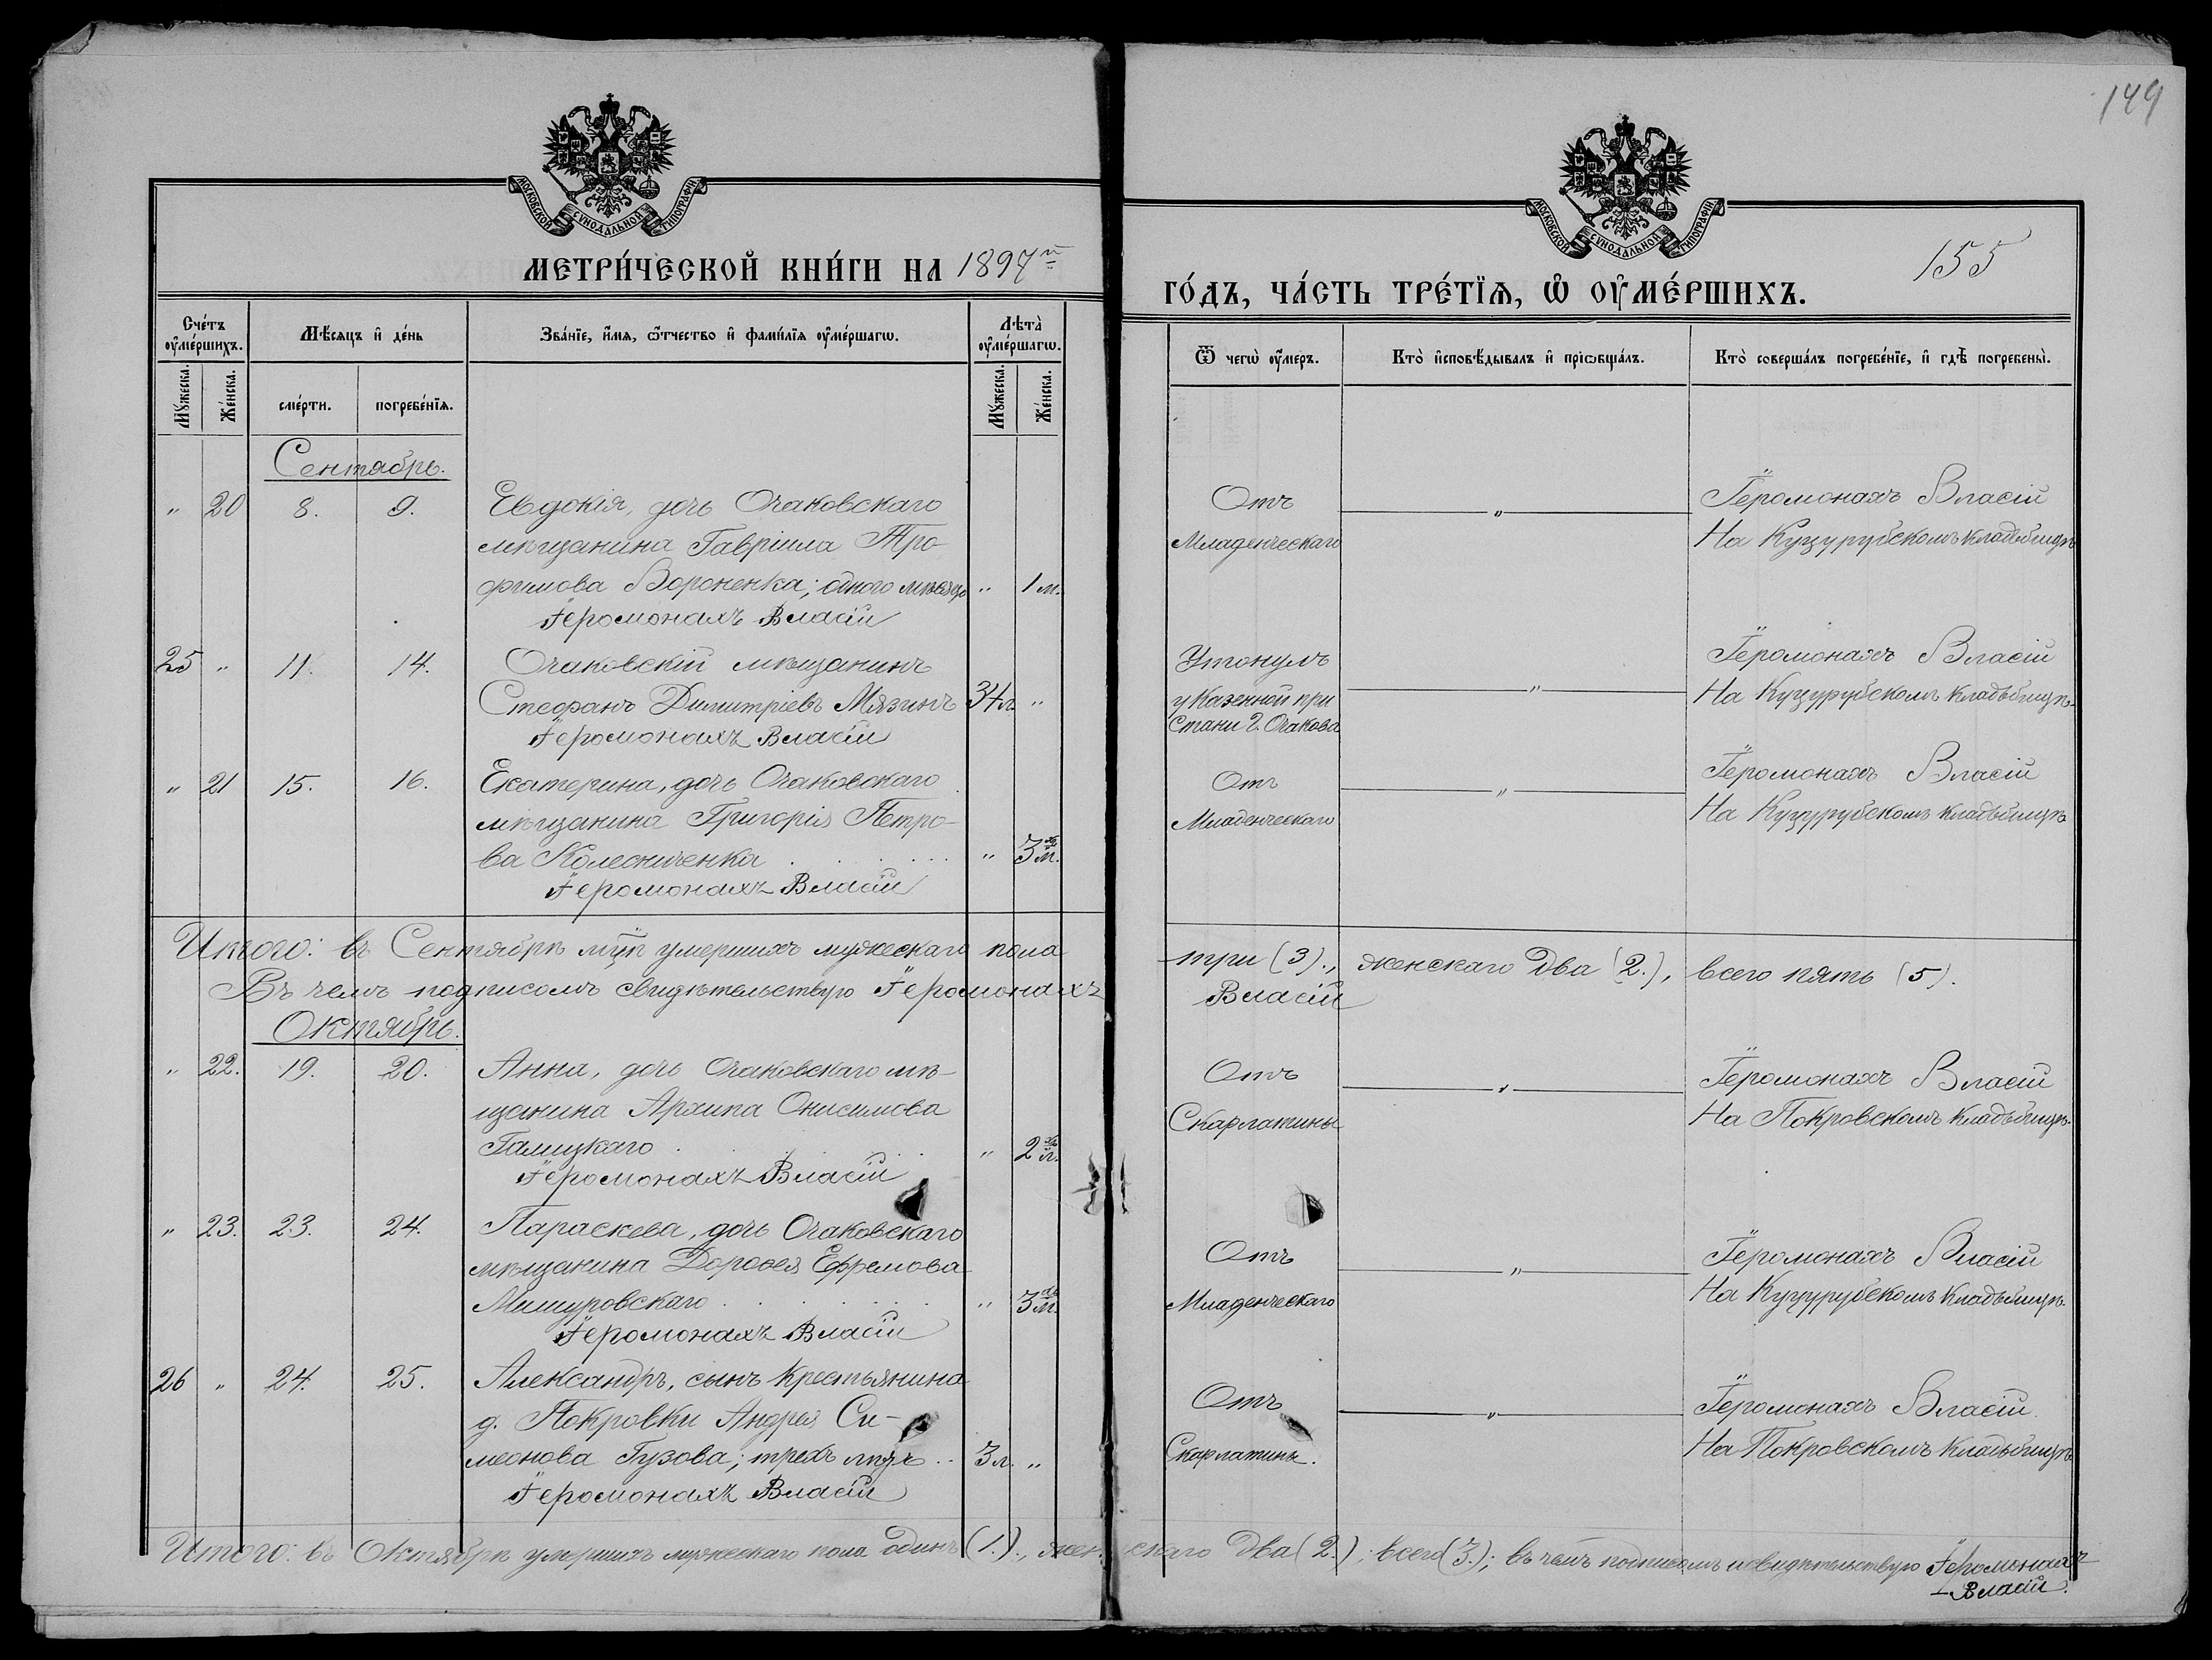 149
МОСКОВСКОЙ СѴНОДАЛЬНОЙ ТИПОГРАФІИ
МОСКОВСКОЙ СѴНОДАЛЬНОЙ ТИПОГРАФІИ
МЕТРИ́ЧЕСКОЙ КНИ́ГИ НА 1897й
ГО́ДЪ, ЧА́СТЬ ТРЕ́ТЇѦ, Ѡ҆ ОУ҆МЕ́РШИХЪ.
155
Сче́тъ оу҆ме́ршихъ.
Мѣ́сѧцъ и҆ де́нь
Зва́нїе, и҆́мѧ, ѻ҆́тчество и҆ фами́лїѧ оу҆ме́ршагѡ.
Лѣ́та оу҆ме́ршагѡ.
Ѿ чегѡ̀ оу҆́меръ.
Кто̀ и҆сповѣ́дывалъ и҆ прїѡбща́лъ.
Кто̀ соверша́лъ погребе́нїе, и҆ гдѣ̀ погребены̀.
Мꙋ́жеска.
Же́нска.
сме́рти.
погребе́нїѧ.
Мꙋ́жеска.
Же́нска.
Сентябрь.
" 20 8. 9. Евдокія, дочь Очаковскаго
мѣщанина Гавріила Тро-
фимова Вороненка; одного мѣсяца " 1 м.
Іеромонахъ Власій
Отъ
Младенческаго
"
Іеромонахъ Власій
На Куцурубскомъ кладбищѣ
25 " 11. 14. Очаковскій мѣщанинъ
Стефанъ Димитріевъ Мязинъ 34 л. "
Іеромонахъ Власій
Утонулъ
у Казенной при
стани г. Очакова
"
Іеромонахъ Власій
На Куцурубскомъ кладбищѣ.
" 21 15. 16. Екатерина, дочь Очаковскаго
мѣщанина Григорія Петро-
ва Колесниченка " 3 м.
Іеромонахъ Власій
Отъ
Младенческаго
"
Іеромонахъ Власій
На Куцурубскомъ кладбищѣ
Итого: въ Сентябрѣ мцѣ умершихъ мужескаго пола три (3)., женскаго два (2.), всего пять (5).
Въ чемъ подписомъ свидѣтельствую Іеромонахъ Власій
Октябрь.
" 22. 19. 20. Анна, дочь Очаковскаго мѣ-
щанина Архипа Онисимова
Галицкаго " 2 л.
Іеромонахъ Власій
Отъ
Скарлатины
"
Іеромонахъ Власій
На Покровскомъ кладбищѣ.
" 23. 23. 24. Параскева, дочь Очаковскаго
мѣщанина Дорофея Ефремова
Мишуровскаго " 3 м.
Іеромонахъ Власій
Отъ
Младенческаго
"
Іеромонахъ Власій
На Куцурубскомъ кладбищѣ.
26 " 24. 25. Александръ, сынъ крестьянина
д. Покровки Андрея Си-
меонова Гузова; трехъ лѣтъ 3 л. "
Іеромонахъ Власій
Отъ
Скарлатины.
"
Іеромонахъ Власій.
На Покровскомъ кладбищѣ
Итого: въ Октябрѣ умершихъ мужескаго пола одинъ (1.)., женскаго два (2.); всего (3.); въ чемъ подписомъ и свидѣтельствую Іеромонахъ
Власій.